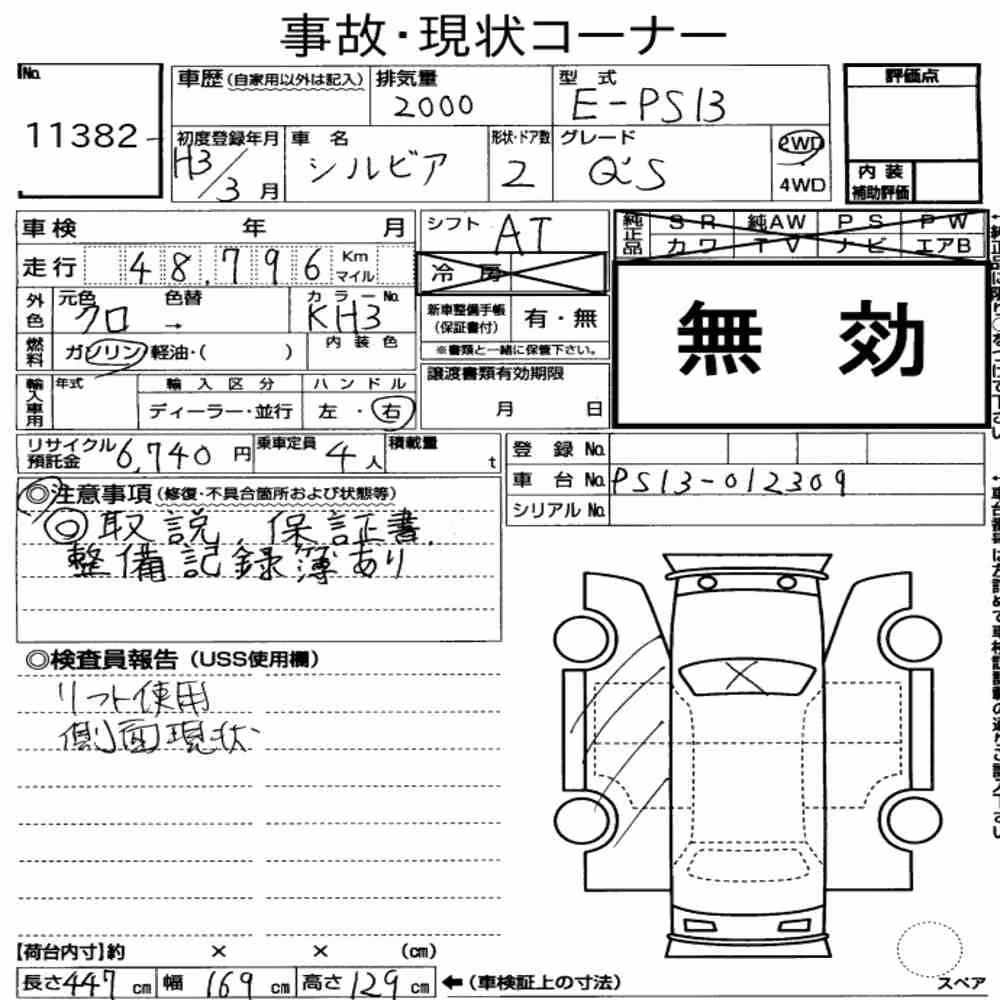 事故・現状コーナー
No.
11382
車歴(自家用以外は記入)
排気量
2000
型式
E-PS13
評価点
初度登録年月
H3/3月
車名
シルビア
形状・ドア数
2
グレード
Q'S
2WD
4WD
内装
補助評価
車検 年 月
シフト AT
純正品
SR 純AW PS PW
カワ TV ナビ エアB
走行 48,796 Km マイル
冷房
外色
元色 色替
クロ →
カラーNo.
KH3
新車整備手帳
(保証書付)
有・無
無効
燃料
ガソリン 軽油・( )
内装色
※書類と一緒に保管下さい。
輸入車用
年式
輸入区分
ハンドル
ディーラー・並行
左・右
譲渡書類有効期限
月 日
リサイクル
預託金
6,740円
乗車定員 4人
積載量 t
登録No.
車台No. PS13-012309
シリアルNo.
◎注意事項(修復・不具合箇所および状態等)
◎取説、保証書、
整備記録簿あり
◎検査員報告(USS使用欄)
リフト使用
側面現状
【荷台内寸】約 × × (cm)
長さ447cm 幅169cm 高さ129cm
←(車検証上の寸法)
スペア